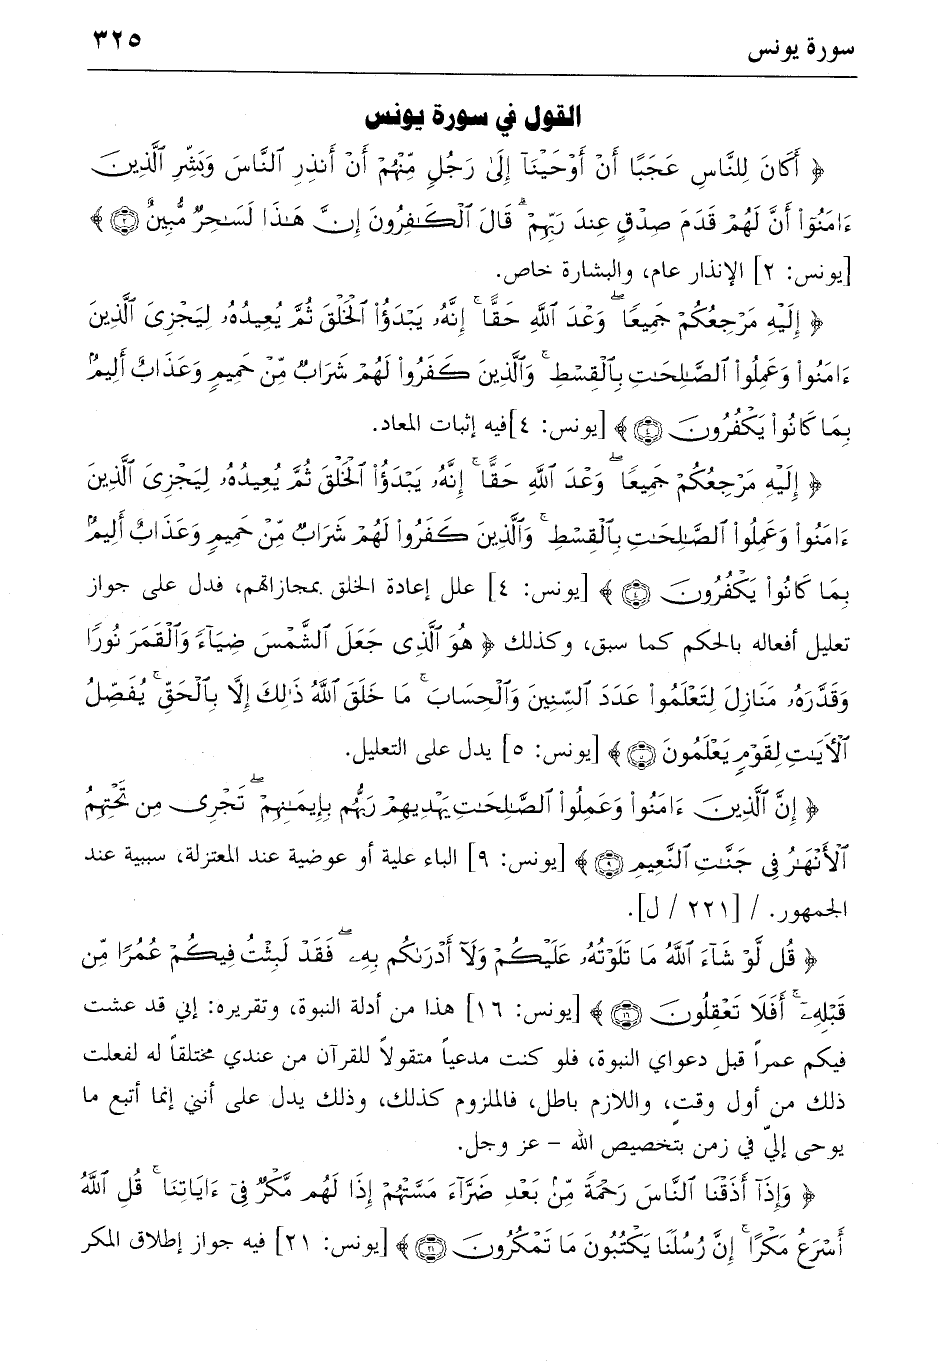 سورة يونس ٣٢٥
القول في سورة يونس
﴿ أَكَانَ لِلنَّاسِ عَجَبًا أَنْ أَوْحَيْنَآ إِلَىٰ رَجُلٍ مِّنْهُمْ أَنْ أَنذِرِ ٱلنَّاسَ وَبَشِّرِ ٱلَّذِينَ
ءَامَنُوٓا۟ أَنَّ لَهُمْ قَدَمَ صِدْقٍ عِندَ رَبِّهِمْ ۗ قَالَ ٱلْكَـٰفِرُونَ إِنَّ هَـٰذَا لَسَـٰحِرٌ مُّبِينٌ ٢ ﴾
[يونس: ٢] الإنذار عام، والبشارة خاص.
﴿ إِلَيْهِ مَرْجِعُكُمْ جَمِيعًا ۖ وَعْدَ ٱللَّهِ حَقًّا ۚ إِنَّهُۥ يَبْدَؤُا۟ ٱلْخَلْقَ ثُمَّ يُعِيدُهُۥ لِيَجْزِىَ ٱلَّذِينَ
ءَامَنُوا۟ وَعَمِلُوا۟ ٱلصَّـٰلِحَـٰتِ بِٱلْقِسْطِ ۚ وَٱلَّذِينَ كَفَرُوا۟ لَهُمْ شَرَابٌ مِّنْ حَمِيمٍ وَعَذَابٌ أَلِيمٌۢ
بِمَا كَانُوا۟ يَكْفُرُونَ ٤ ﴾ [يونس: ٤]فيه إثبات المعاد.
﴿ إِلَيْهِ مَرْجِعُكُمْ جَمِيعًا ۖ وَعْدَ ٱللَّهِ حَقًّا ۚ إِنَّهُۥ يَبْدَؤُا۟ ٱلْخَلْقَ ثُمَّ يُعِيدُهُۥ لِيَجْزِىَ ٱلَّذِينَ
ءَامَنُوا۟ وَعَمِلُوا۟ ٱلصَّـٰلِحَـٰتِ بِٱلْقِسْطِ ۚ وَٱلَّذِينَ كَفَرُوا۟ لَهُمْ شَرَابٌ مِّنْ حَمِيمٍ وَعَذَابٌ أَلِيمٌۢ
بِمَا كَانُوا۟ يَكْفُرُونَ ٤ ﴾ [يونس: ٤] علل إعادة الخلق بمجازاهم، فدل على جواز
تعليل أفعاله بالحكم كما سبق، وكذلك ﴿ هُوَ ٱلَّذِى جَعَلَ ٱلشَّمْسَ ضِيَآءً وَٱلْقَمَرَ نُورًا
وَقَدَّرَهُۥ مَنَازِلَ لِتَعْلَمُوا۟ عَدَدَ ٱلسِّنِينَ وَٱلْحِسَابَ ۚ مَا خَلَقَ ٱللَّهُ ذَٰلِكَ إِلَّا بِٱلْحَقِّ ۚ يُفَصِّلُ
ٱلْـَٔايَـٰتِ لِقَوْمٍ يَعْلَمُونَ ٥ ﴾ [يونس: ٥] يدل على التعليل.
﴿ إِنَّ ٱلَّذِينَ ءَامَنُوا۟ وَعَمِلُوا۟ ٱلصَّـٰلِحَـٰتِ يَهْدِيهِمْ رَبُّهُم بِإِيمَـٰنِهِمْ ۖ تَجْرِى مِن تَحْتِهِمُ
ٱلْأَنْهَـٰرُ فِى جَنَّـٰتِ ٱلنَّعِيمِ ٩ ﴾ [يونس: ٩] الباء علية أو عوضية عند المعتزلة، سببية عند
الجمهور. / [٢٢١ / ل].
﴿ قُل لَّوْ شَآءَ ٱللَّهُ مَا تَلَوْتُهُۥ عَلَيْكُمْ وَلَآ أَدْرَىٰكُم بِهِۦ ۖ فَقَدْ لَبِثْتُ فِيكُمْ عُمُرًا مِّن
قَبْلِهِۦٓ ۚ أَفَلَا تَعْقِلُونَ ١٦ ﴾ [يونس: ١٦] هذا من أدلة النبوة، وتقريره: إني قد عشت
فيكم عمراً قبل دعواي النبوة، فلو كنت مدعياً متقولاً للقرآن من عندي مختلقاً له لفعلت
ذلك من أول وقت، واللازم باطل، فالملزوم كذلك، وذلك يدل على أنني إنما أتبع ما
يوحى إليّ في زمن بتخصيص الله - عز وجل.
﴿ وَإِذَآ أَذَقْنَا ٱلنَّاسَ رَحْمَةً مِّنۢ بَعْدِ ضَرَّآءَ مَسَّتْهُمْ إِذَا لَهُم مَّكْرٌ فِىٓ ءَايَاتِنَا ۚ قُلِ ٱللَّهُ
أَسْرَعُ مَكْرًا ۚ إِنَّ رُسُلَنَا يَكْتُبُونَ مَا تَمْكُرُونَ ٢١ ﴾ [يونس: ٢١] فيه جواز إطلاق المكر